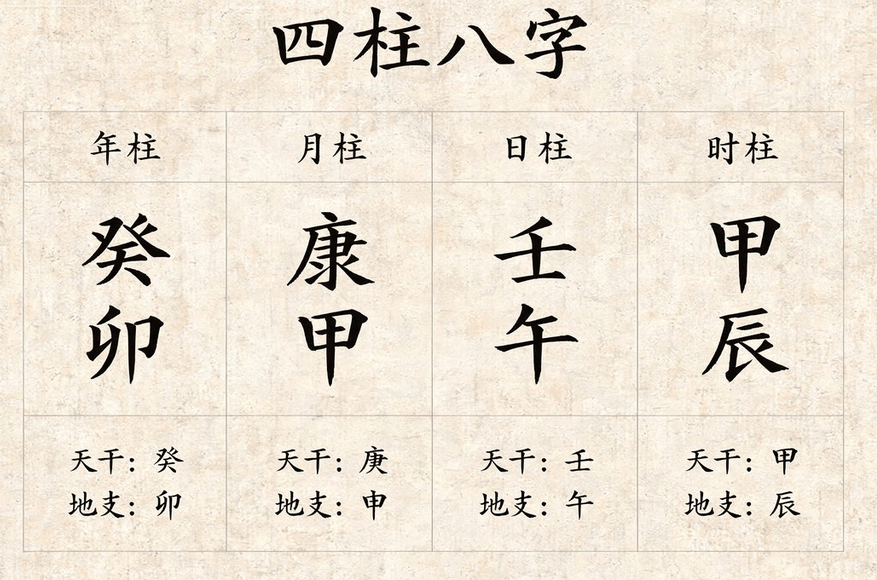 四柱八字
年柱 月柱 日柱 时柱
癸 康 壬 甲
卯 甲 午 辰
天干：癸 天干：庚 天干：壬 天干：甲
地支：卯 地支：申 地支：午 地支：辰